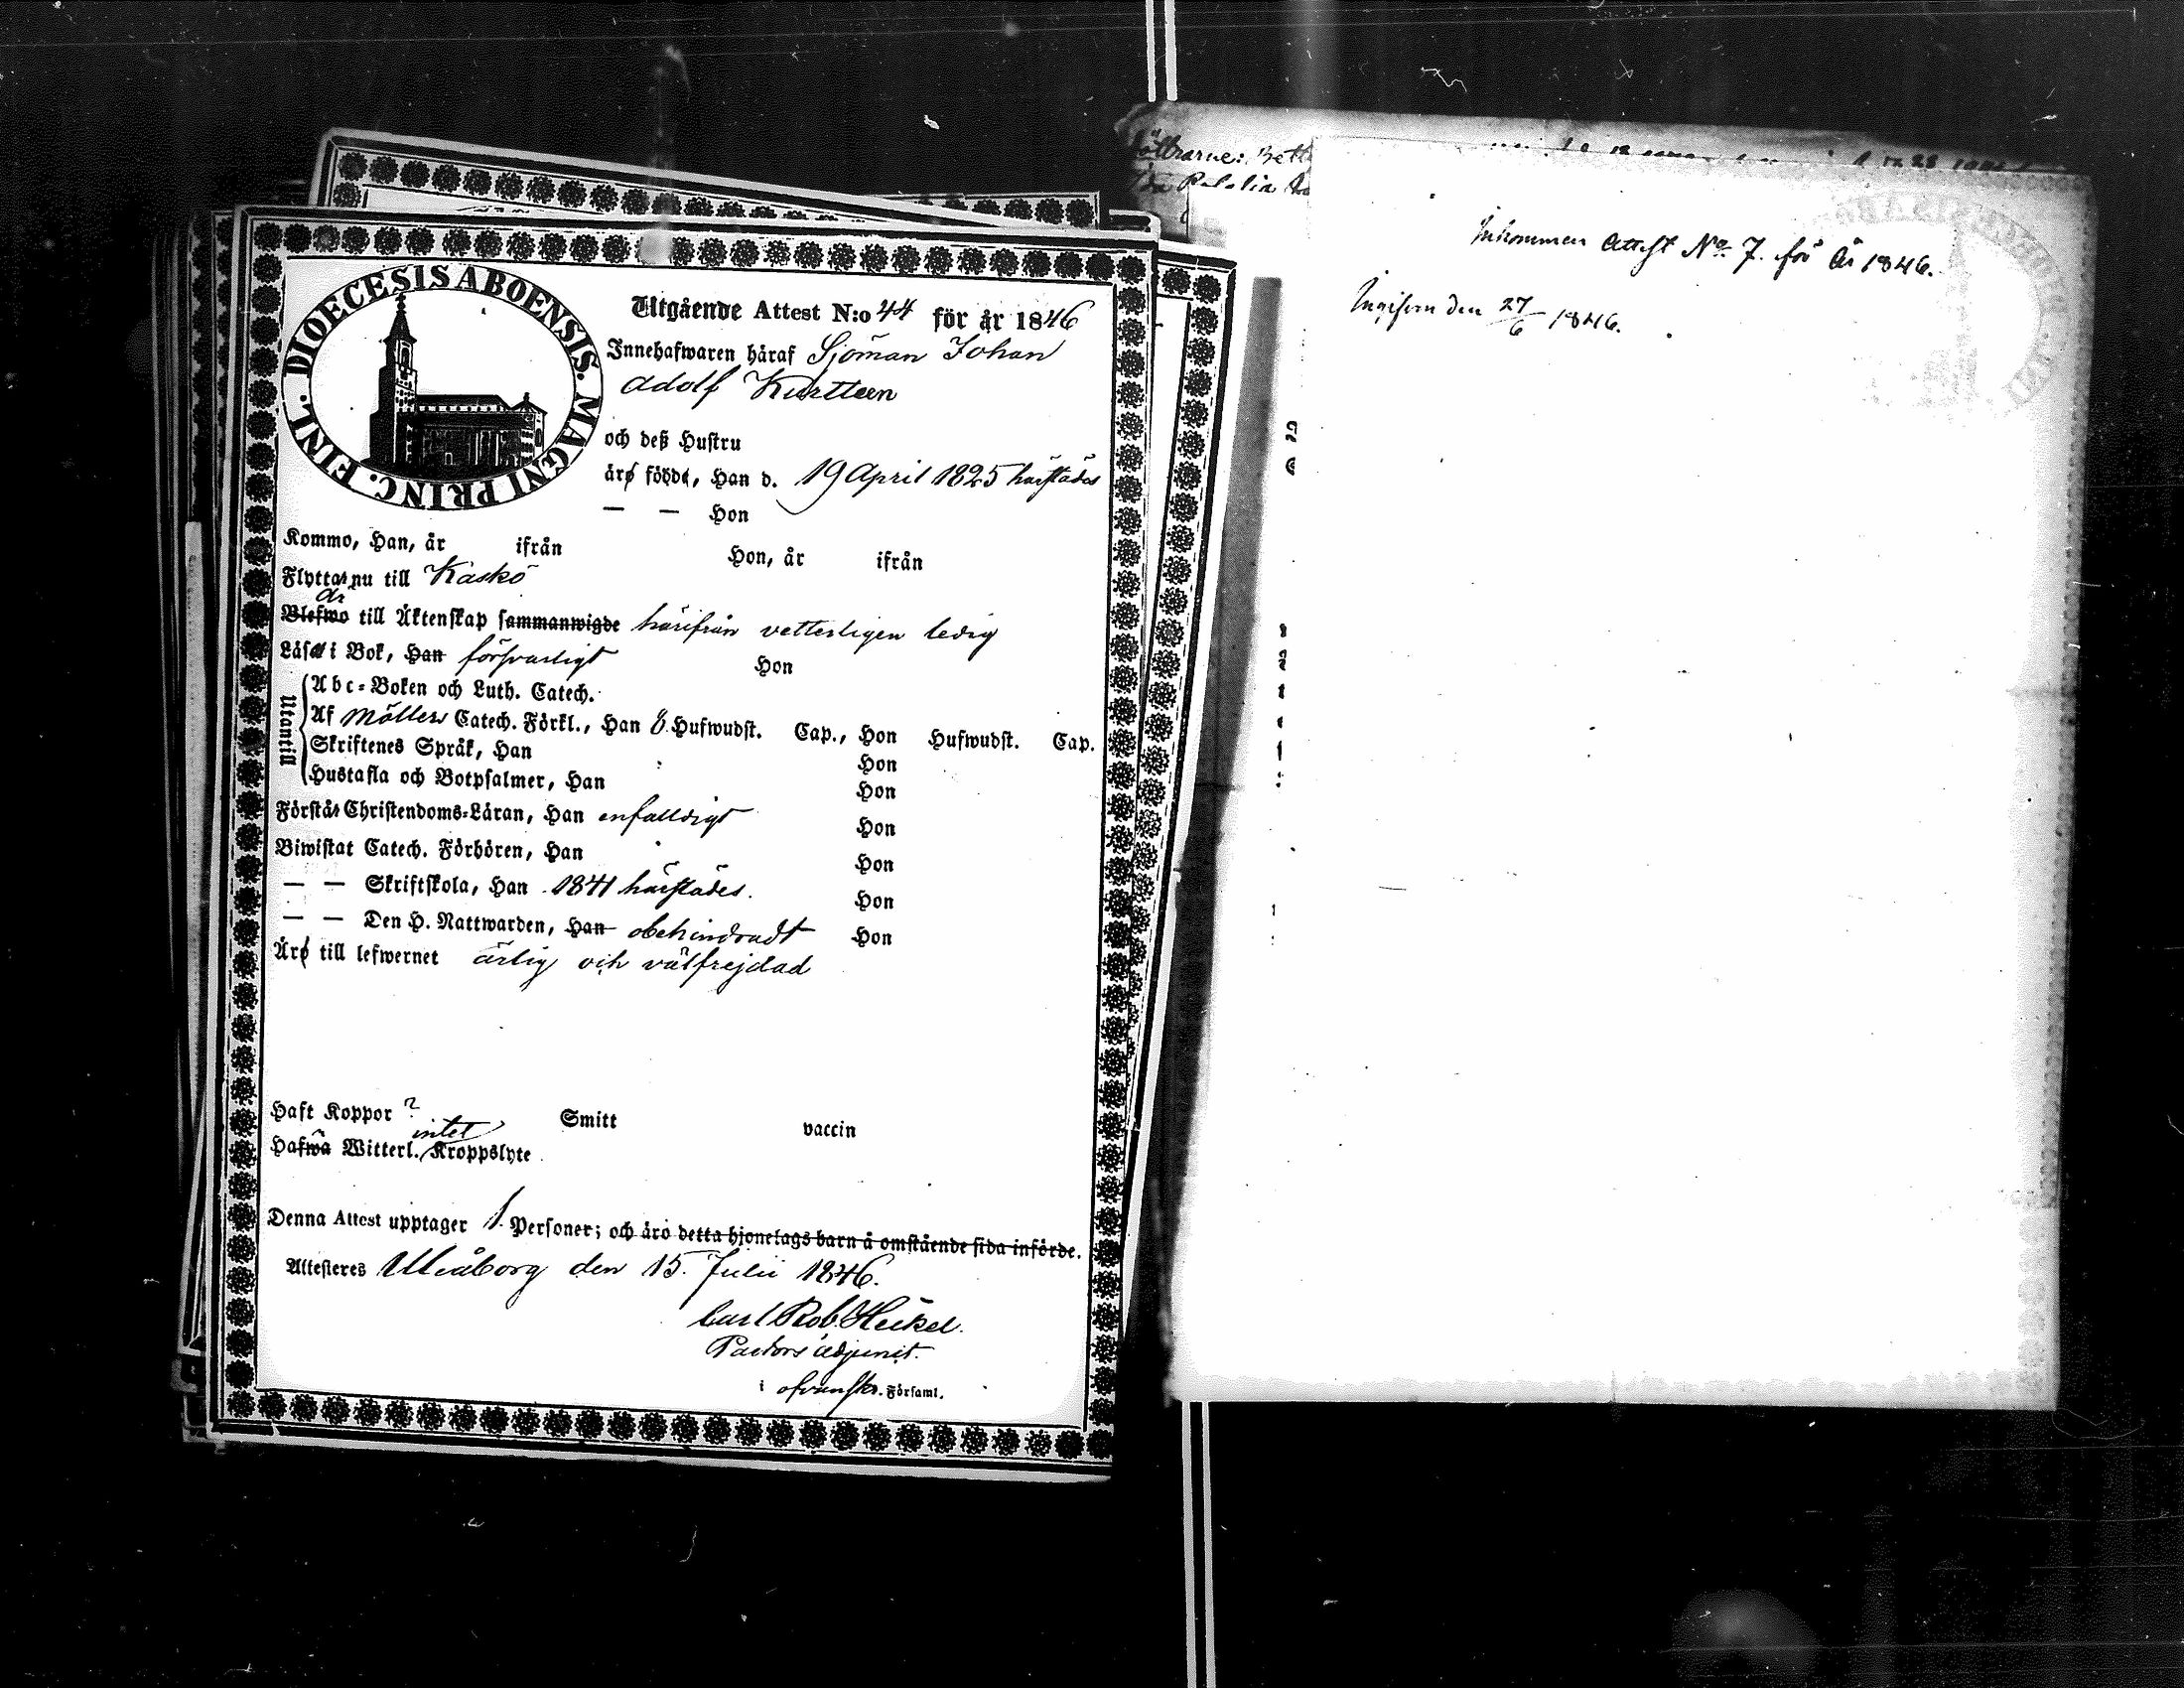 DIOECESIS ABOENSIS. MAGNI PRINC. FINL.
Utgående Attest N:o 44 för år 1846
Innehafwaren häraf Sjöman Johan
Adolf Kurtteen
och deß Hustru
äro födde, Han d. 19 April 1825 härstädes
— — Hon
Kommo, Han, år ifrån Hon, år ifrån
Flyttar nu till Kaskö
är
Blefwo till Äktenskap sammanwigde härifrån vetterligen ledig
Läsa i Bok, Han försvarligt Hon
Utantill
Abc-Boken och Luth. Catech.
Af Möllers Catech. Förkl., Han 8 Hufwudst. Cap., Hon Hufwudst. Cap.
Skriftenes Språk, Han Hon
Hustafla och Botpsalmer, Han Hon
Förstår Christendoms-Läran, Han enfaldigt Hon
Biwistat Catech. Förhören, Han Hon
— — Skriftskola, Han 1841 härstädes. Hon
— — Den H. Nattwarden, Han obehindradt Hon
Äro till lefwernet ärlig och välfrejdad
Haft Koppor ? Smitt vaccin
intet
Hafwa Witterl. Kroppslyte
Denna Attest upptager 1. Personer; och äro detta hjonelags barn å omstående sida införde.
Attesteres Uleåborg den 15. Julii 1846.
Carl Rob. Heikel.
Pastors adjunct.
i Församl.
Inkommen Attest No 7. för År 1846.
Ingifven den 27/6 1846.